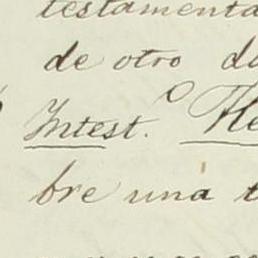 testamenta
de otro d
Intest.º He
bre una t